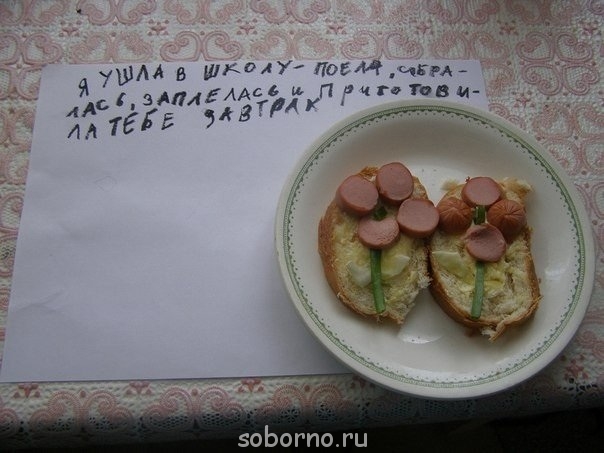 Я УШЛА В ШКОЛУ - ПОЕЛА, СОБРА-
ЛАСЬ, ЗАПЛЕЛАСЬ И ПРИГОТОВИ-
ЛА ТЕБЕ ЗАВТРАК
soborno.ru